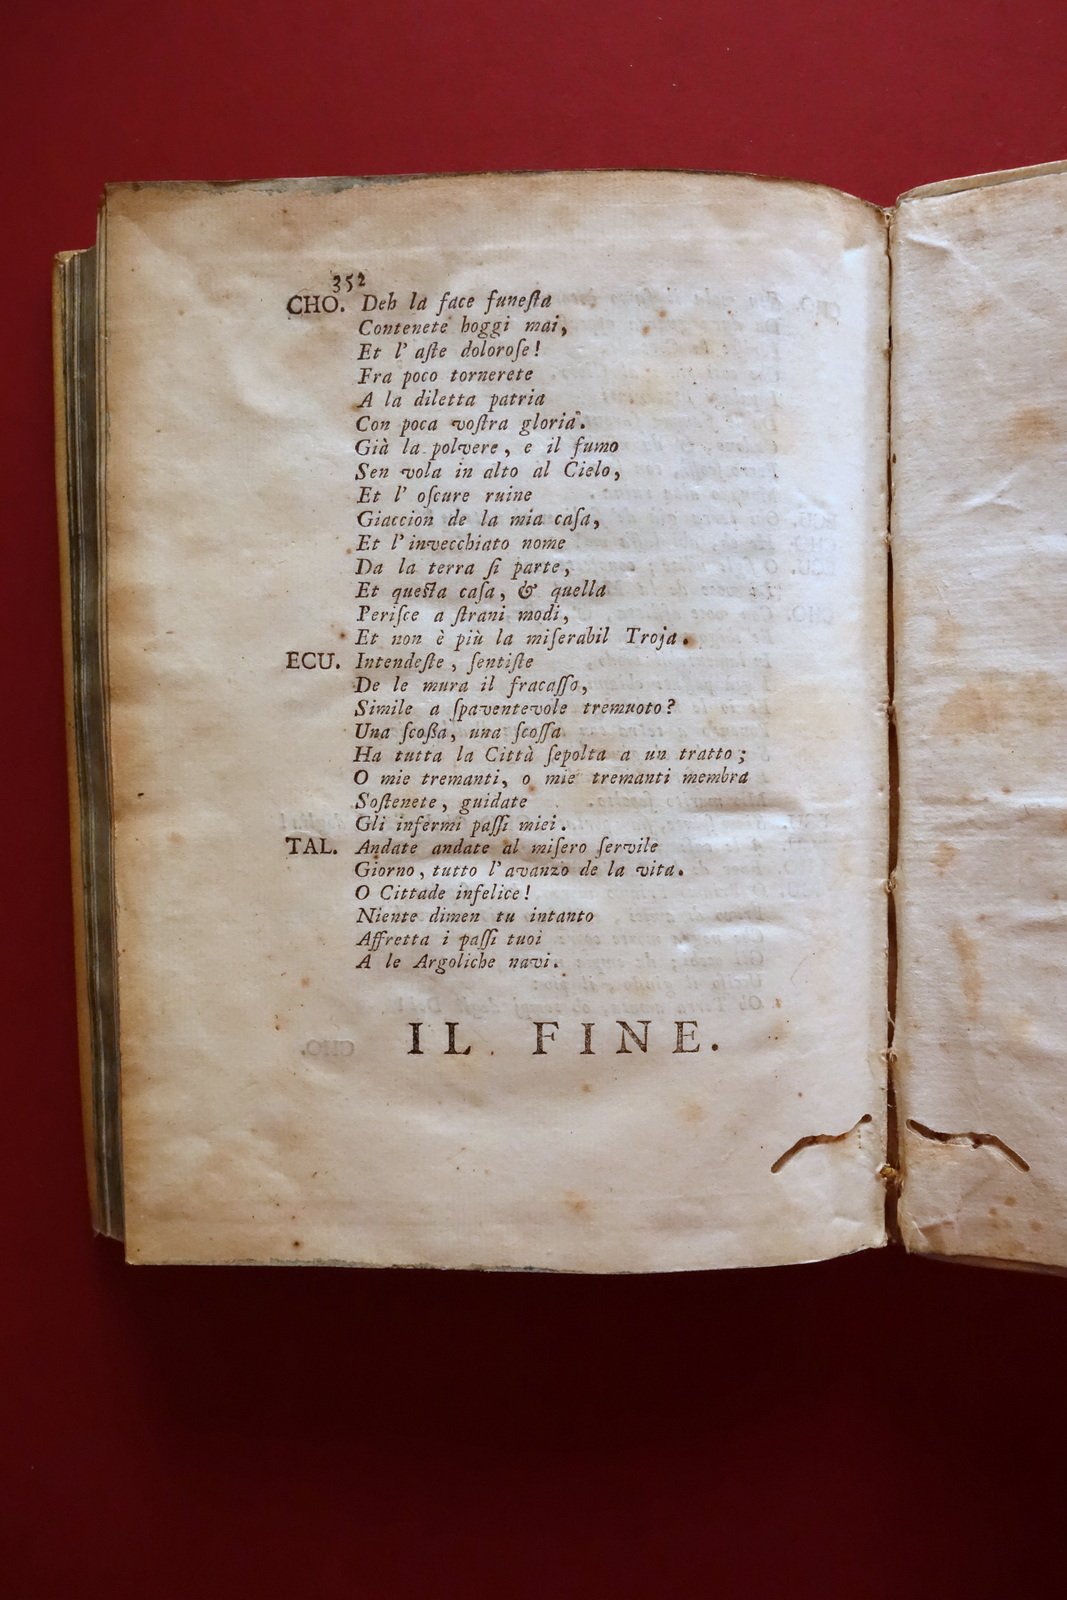 352
CHO. Deh la face funeſta
Contenete hoggi mai,
Et l' aſte doloroſe!
Fra poco tornerete
A la diletta patria
Con poca voſtra gloria.
Già la polvere, e il fumo
Sen vola in alto al Cielo,
Et l' oſcure ruine
Giaccion de la mia caſa,
Et l'invecchiato nome
Da la terra ſi parte,
Et queſta caſa, & quella
Periſce a ſtrani modi,
Et non è più la miſerabil Troja.
ECU. Intendeſte, ſentiſte
De le mura il fracaſſo,
Simile a ſpaventevole tremuoto?
Una ſcoßa, una ſcoſſa
Ha tutta la Città ſepolta a un tratto;
O mie tremanti, o mie tremanti membra
Soſtenete, guidate
Gli infermi paſſi miei.
TAL. Andate andate al miſero ſervile
Giorno, tutto l'avanzo de la vita.
O Cittade infelice!
Niente dimen tu intanto
Affretta i paſſi tuoi
A le Argoliche navi.
IL FINE.